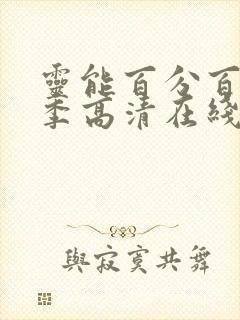 靈能百分百
季高清在綫
與寂寞共舞